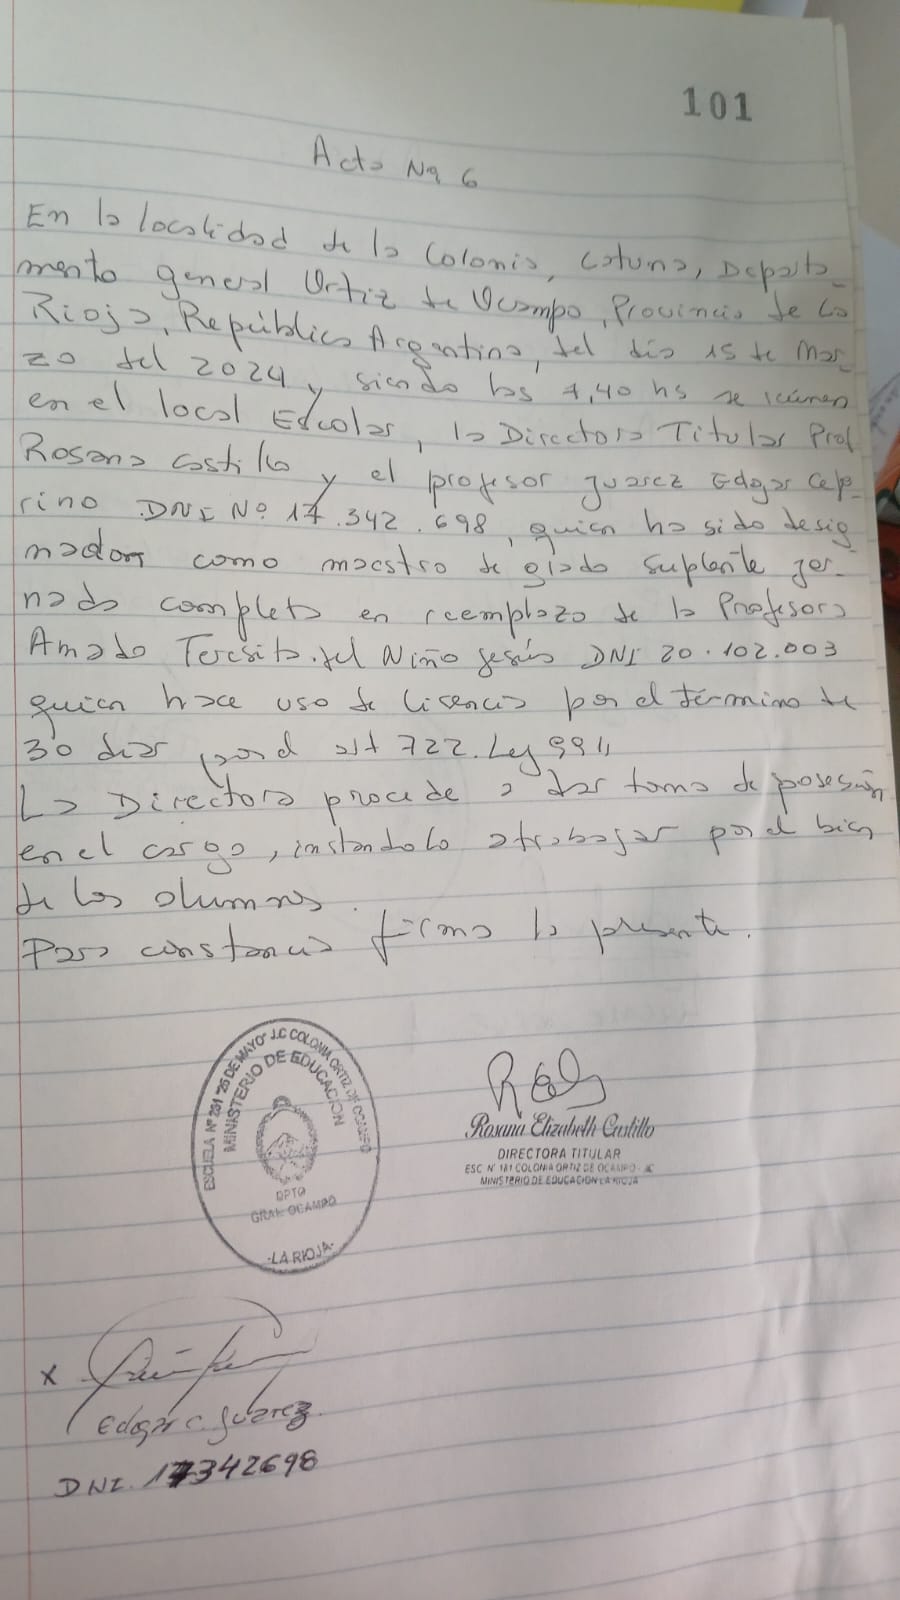 101
Acta Nº 6
En la localidad de la Colonia, Catuna, Departa_
mento general Ortiz de Ocampo, Provincia de La
Rioja, República Argentina, del día 15 de Mar_
zo del 2024 y siendo las 7,40 hs se reúnen
en el local Escolar, la Directora Titular Prof
Rosana Castillo y el profesor Juarez Edgar Cefe_
rino DNI Nº 17.342.698, quien ha sido desig
nador como maestro de grado suplente jor_
nada completa en reemplazo de la Profesora
Amado Teresita del Niño Jesús DNI 20.102.003
quien hace uso de licencia por el término de
30 días por el art 722. Ley 9911
La Directora procede a dar toma de posesión
en el cargo, instandolo a trabajar por el bien
de los alumnos.
Para constancia firma la presente.
ESCUELA Nº "25 DE MAYO" J.C COLONIA ORTIZ DE OCAMPO
MINISTERIO DE EDUCACION
DPTO
GRAL OCAMPO
-LA RIOJA-
Rosana Elizabeth Castillo
DIRECTORA TITULAR
ESC Nº 181 COLONIA ORTIZ DE OCAMPO - JC
MINISTERIO DE EDUCACION LA RIOJA
x
Edgar C. Juarez
DNI. 17342698